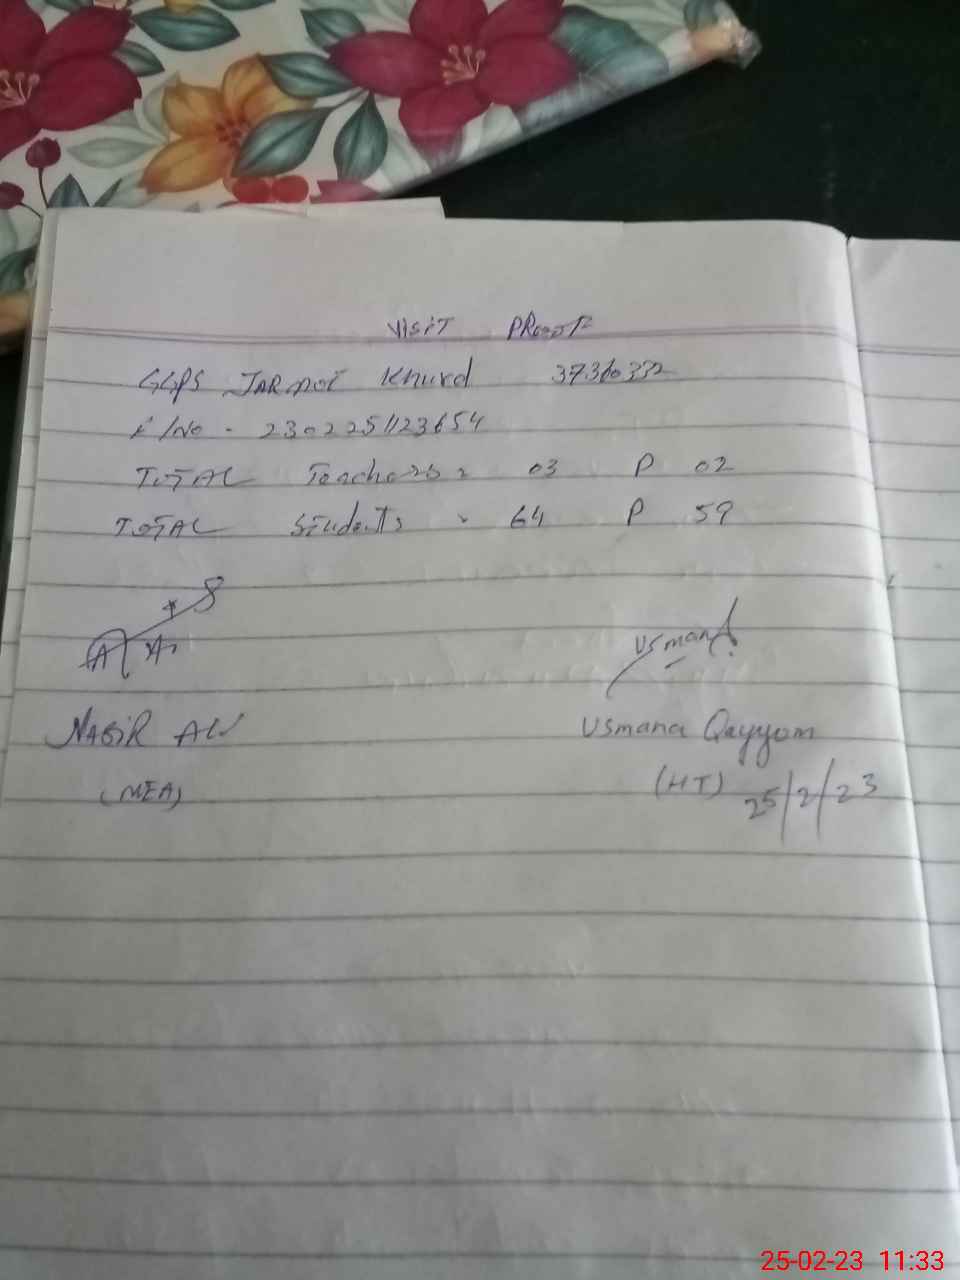 Visit Proof
GGPS Jarmot Khurd 37360332
F/No - 2302251123654
Total Teachers : 03 P 02
Total Students : 64 P 59
Usman
Nasir Ali Usmana Qayyom
(MEA) (HT) 25/2/23
25-02-23 11:33